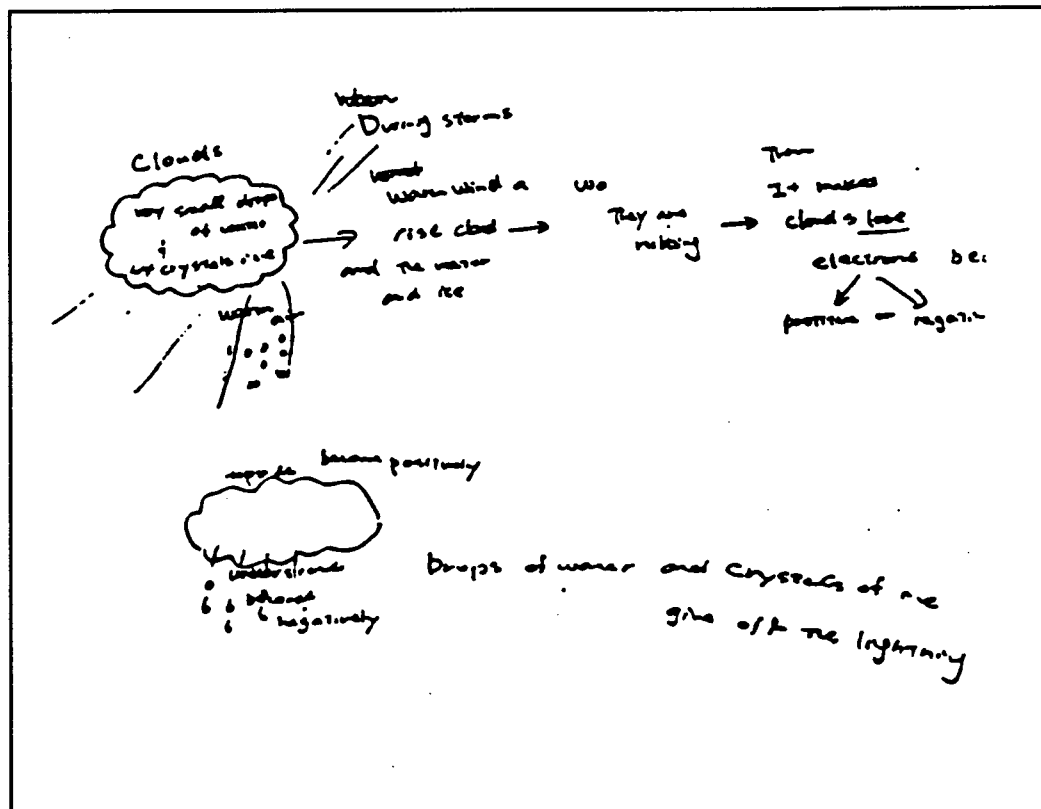 Clouds
very small drops
of water
crystals ice
warm air
When
During storms
warm wind a
rise cloud
and the water
and ice
wo
They are
rubbing
Then
It makes
clouds lose
electrons be
positive or negativ
become positively
underside
become
negatively
Drops of water and crystals of ice
give off the lightning